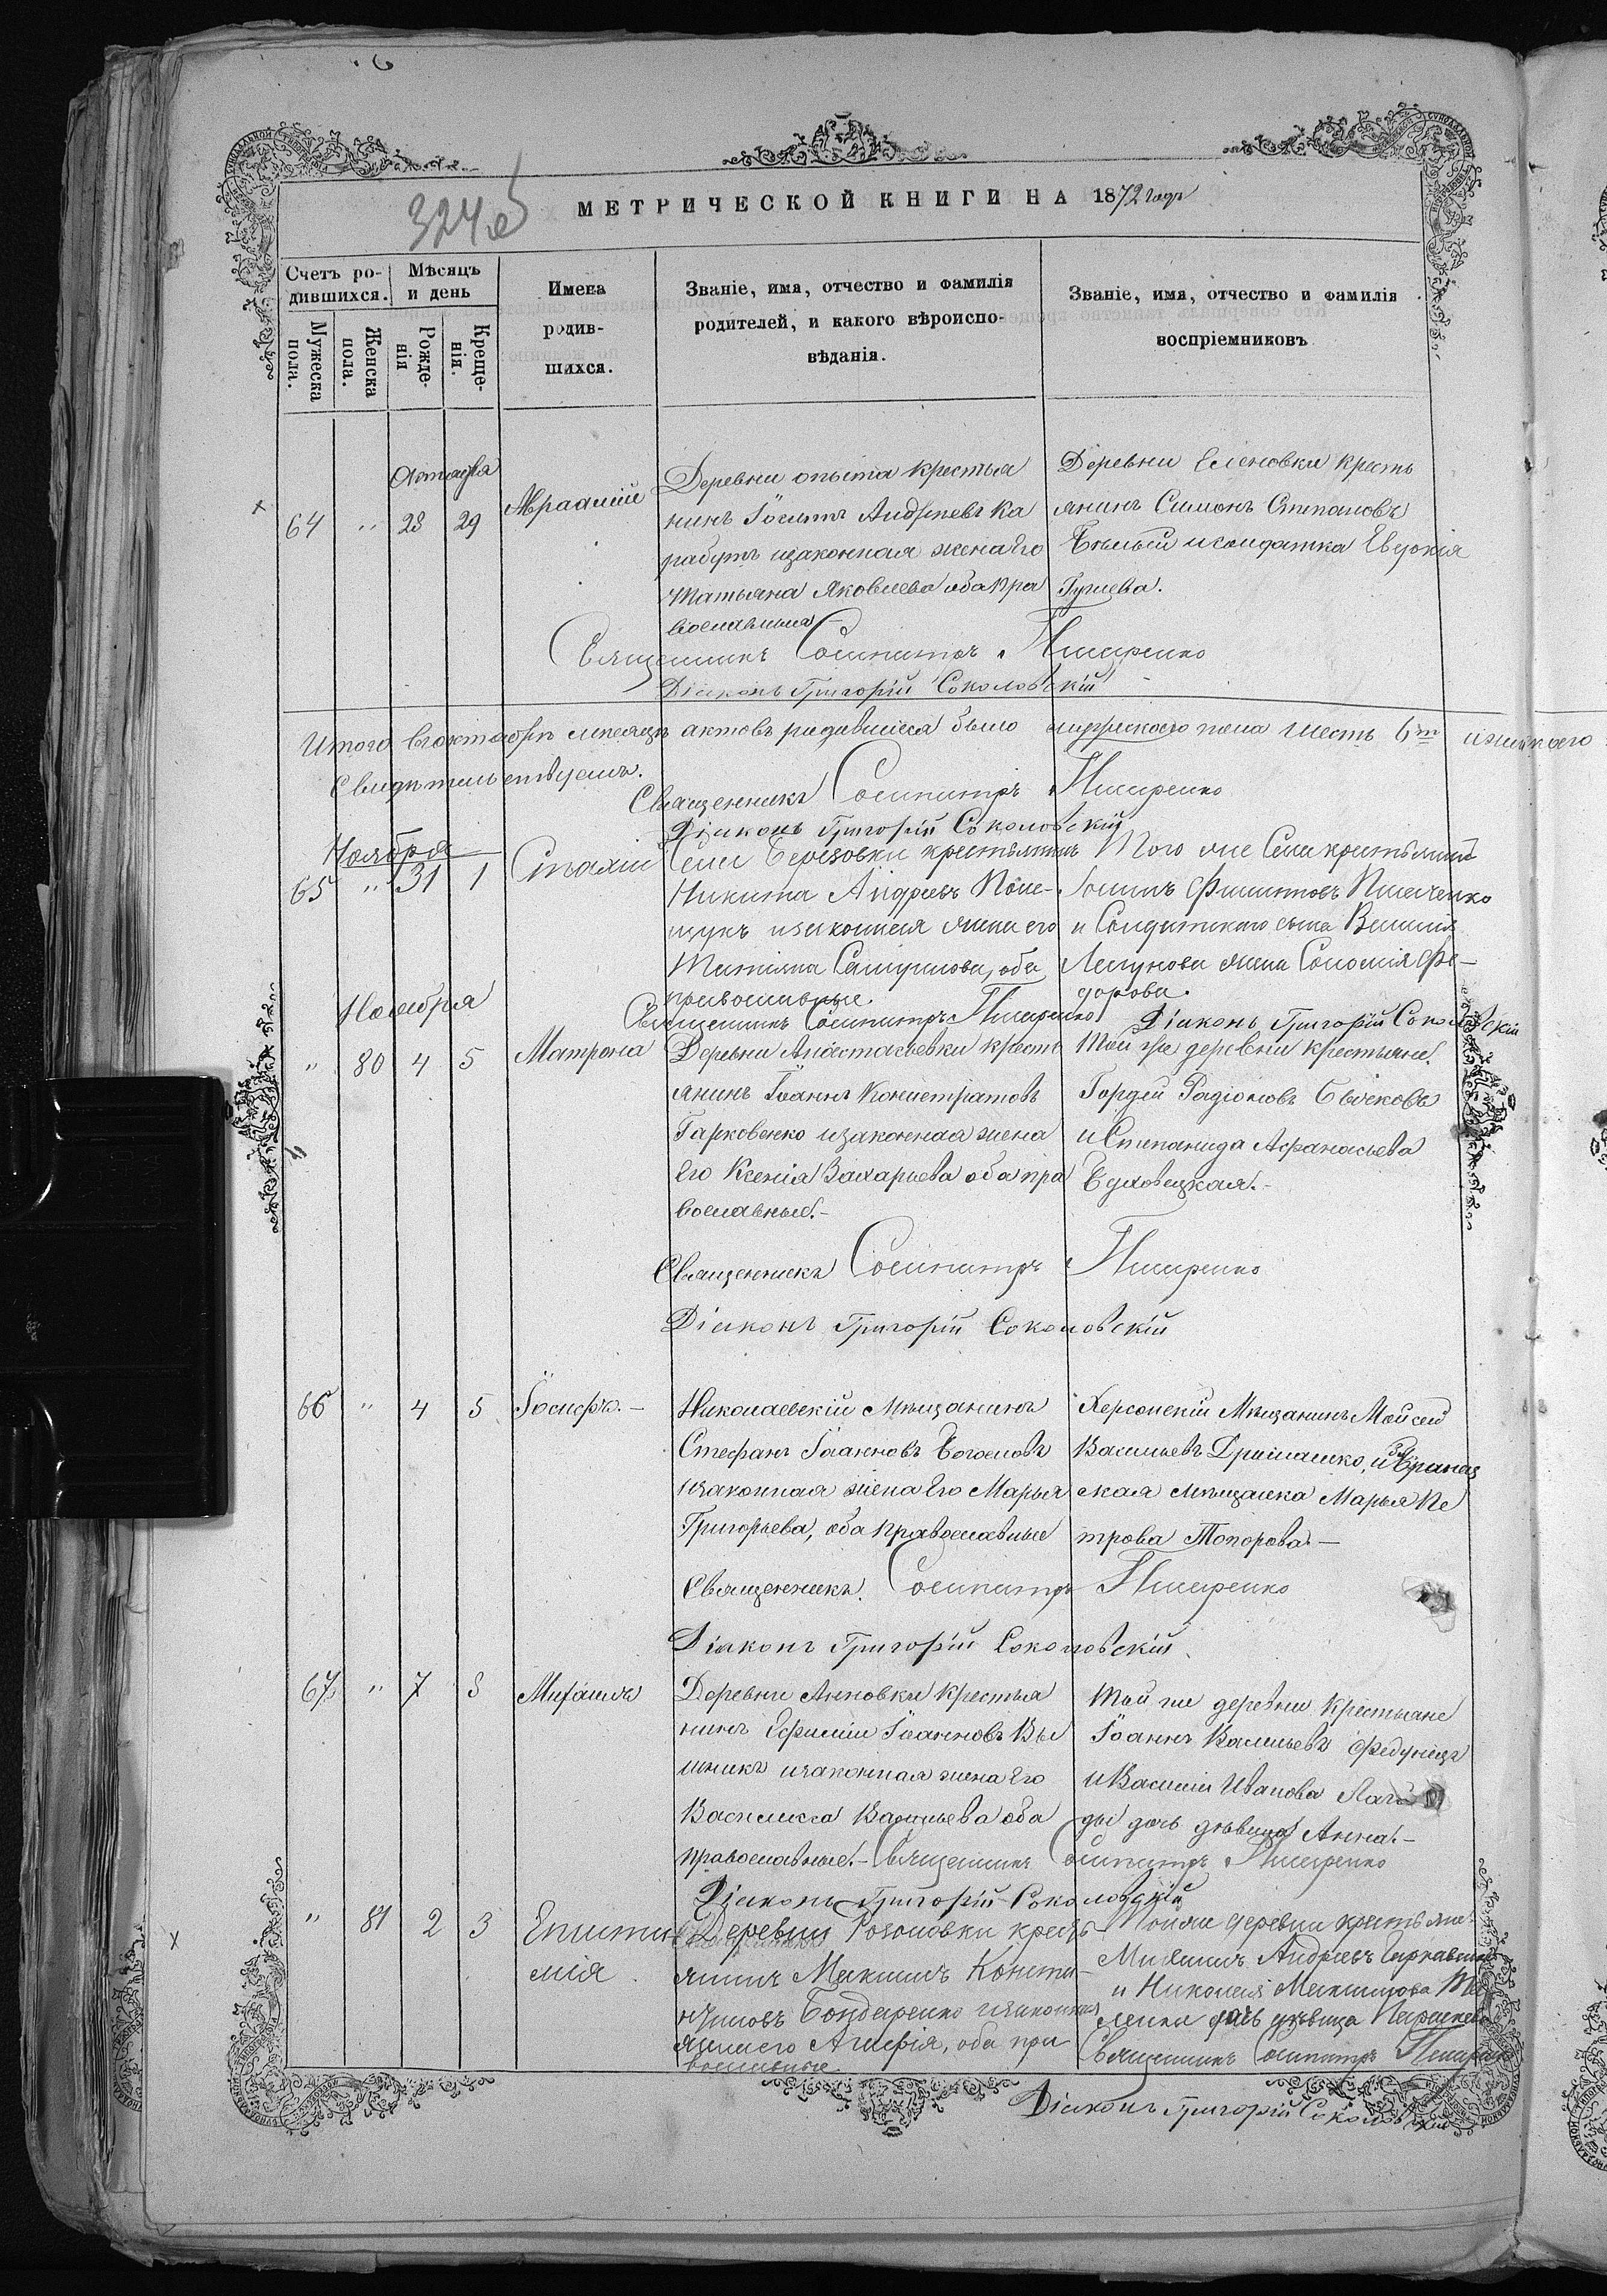 324 об
МЕТРИЧЕСКОЙ КНИГИ НА 1872 годъ
Счетъ ро-
дившихся.
Мѣсяцъ
и день
Мужеска
пола.
Женска
пола.
Рожде-
нія
Креще-
нія.
Имена
родив-
шихся.
Званіе, имя, отчество и фамилія
родителей, и какого вѣроиспо-
вѣданія.
Званіе, имя, отчество и фамилія
воспріемниковъ
Октября
64 " 28 29
Авраамій
Деревни опыта крестья
нинъ Іосифъ Андреевъ Ка
рабутъ изаконная жена его
Татьяна Яковлева оба пра
вославныя
Деревни Еленовки кресть
янинъ Симонъ Степановъ
Бѣлый исолдатка Евдокія
Гуриева.
Священникъ Сосипатръ Писаренко
Діаконъ Григорій Соколовскій
Итого въ октябрѣ мѣсяцѣ актовъ родившихся было мужескаго пола шесть 6ть иженскаго
Свидѣтельствуемъ.
Священникъ Сосипатръ Писаренко
Діаконъ Григорій Соколовскій
Ноября
65 " 31 1
Села Березовки крестьянинъ
Никита Андреевъ Поле-
щукъ изаконная жена его
Татіяна оба
православные.
Того же Села крестьянинъ
Филиповъ
и Солдатскаго сына
жена Соломія Фе-
дорова.
Священникъ Сосипатръ Писаренко Діаконъ Григорій Соколовскій
Ноября
" 80 4 5
Матрона
Деревни Анастасьевки кресть
янинъ Іоаннъ Калистратовъ
Гарковенко изаконная жена
его Ксенія Захарьева оба пра
вославные.-
Той же деревни крестьяне.
Гордей Радіоновъ Бычковъ
иСтепанида Афанасьева
Священникъ Сосипатръ Писаренко
Діаконъ Григорій Соколовскій
66 " 4 5
Іосифъ.-
Николаевскій Мѣщанинъ
Стефанъ Іоанновъ Богословъ
изаконная жена его Марья
Григорьева, оба православные
Херсонскій Мѣщанинъ Мойсей
Васильевъ
ская мѣщанка Марья Пе
трова Топорова.-
Священникъ. Сосипатръ Писаренко
Діаконъ Григорій Соколовскій
67 " 7 8
Михаилъ
Деревни Анновки крестья
нинъ Ефимій Іоанновъ Вы
шникъ изаконная жена его
Василисса Васильева оба
православные.- Священникъ Сосипатръ Писаренко
Той же деревни крестьяне
Іоаннъ Васильевъ Федунецъ
иВасилія Иванова
ды дочь дѣвица Анна.-
Діаконъ Григорій Соколовскій
" 81 2 3
Еписти-
мія
Деревни кресть-
янинъ Максимъ Конста-
Бондаренко изаконная
жена его оба пра
вославные.
Тойже деревни крестьяне
Михаилъ Андреевъ
и Николая Максимова
дочь дѣвица Параскева
Священникъ Сосипатръ Писаренко
Діаконъ Григорій Соколовскій